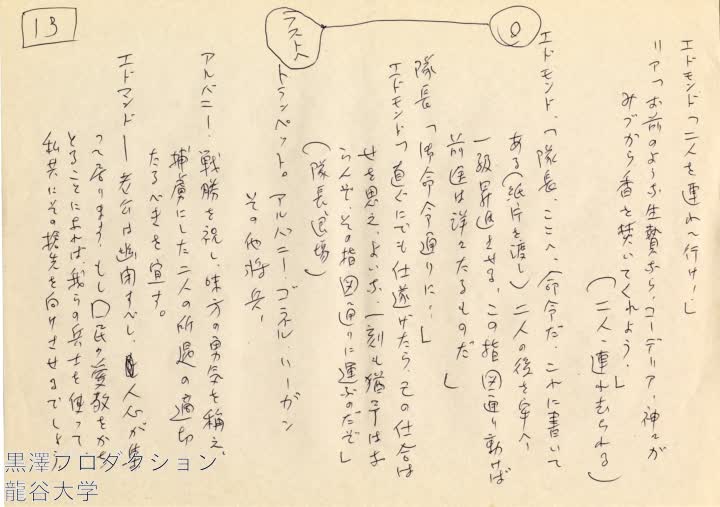 13
エドモンド「二人を連れて行け!」
リア「お前のような生贄なら、コーデリア、神々が
みづから香を焚いてくれよう」
(二人、連れ去られる)
エドモンド「隊長、ここへ、命令だ、これに書いて
ある(紙片を渡し)二人の後を牢へ
一級昇進させる、この指図通り動けば
前途は洋々たるものだ」
隊長「御命令通りに」
エドモンド「直ぐにでも仕遂げたら、その仕合は
せを思え、よいか、一刻も猶予はな
らんぞ、その指図通りに運ぶのだぞ」
(隊長退場)
ラストへ
トランペット。アルバニー、ゴネリル、リーガン
その他将兵、
アルバニー、戦勝を祝し、味方の勇気を称え、
捕虜にした二人の所遇の適切
たるべきを宣す。
エドマンド―老公は幽閉すべし、人心が集
って居ります、もし民の愛敬をかち
とることになれば、我らの兵士を使って
私共にその槍先を向けさせるでしょ
黒澤プロダクション
龍谷大学